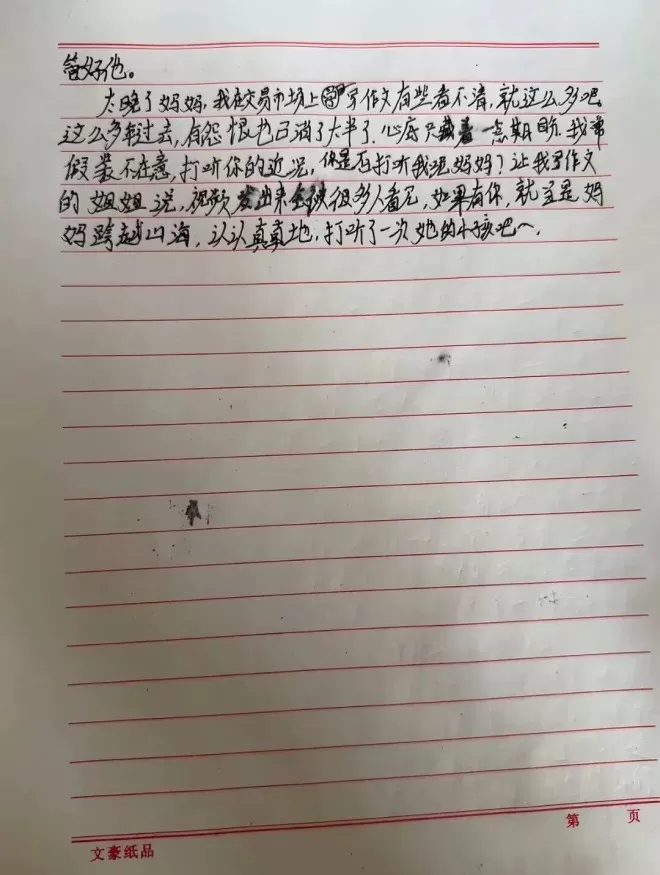 管好他。
太晚了妈妈，我在交易市场上写作文有些看不清，就这么多吧
这么多年过去，有怨恨也已消了大半了，心底只藏着一点期盼，我常
假装不在意，打听你的近况，你是否打听我呢妈妈？让我写作文
的姐姐说，视频发出来会被很多人看见，如果有你，就全是妈
妈跨越山海，认认真真地，打听了一次她的小孩吧～
第 页
文豪纸品